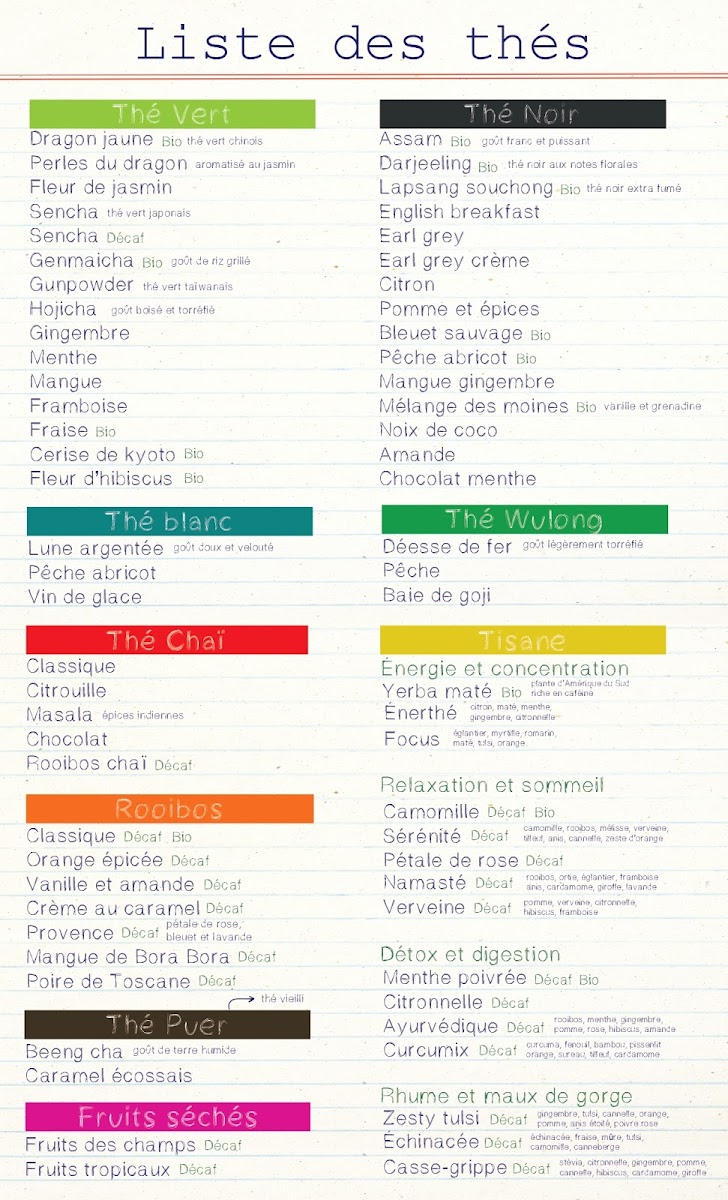 Liste des thés
Thé Vert
Dragon jaune Bio thé vert chinois
Perles du dragon aromatisé au jasmin
Fleur de jasmin
Sencha thé vert japonais
Sencha Décaf
Genmaicha Bio goût de riz grillé
Gunpowder thé vert taïwanais
Hojicha goût boisé et torréfié
Gingembre
Menthe
Mangue
Framboise
Fraise Bio
Cerise de kyoto Bio
Fleur d'hibiscus Bio
Thé blanc
Lune argentée goût doux et velouté
Pêche abricot
Vin de glace
Thé Chaï
Classique
Citrouille
Masala épices indiennes
Chocolat
Rooibos chaï Décaf
Rooibos
Classique Décaf Bio
Orange épicée Décaf
Vanille et amande Décaf
Crème au caramel Décaf
Provence Décaf pétale de rose,
bleuet et lavande
Mangue de Bora Bora Décaf
Poire de Toscane Décaf
thé vieilli
Thé Puer
Beeng cha goût de terre humide
Caramel écossais
Fruits séchés
Fruits des champs Décaf
Fruits tropicaux Décaf
Thé Noir
Assam Bio goût franc et puissant
Darjeeling Bio thé noir aux notes florales
Lapsang souchong Bio thé noir extra fumé
English breakfast
Earl grey
Earl grey crème
Citron
Pomme et épices
Bleuet sauvage Bio
Pêche abricot Bio
Mangue gingembre
Mélange des moines Bio vanille et grenadine
Noix de coco
Amande
Chocolat menthe
Thé Wulong
Déesse de fer goût légèrement torréfié
Pêche
Baie de goji
Tisane
Énergie et concentration
Yerba maté Bio plante d'Amérique du Sud
riche en caféine
Énerthé citron, maté, menthe,
gingembre, citronnelle
Focus églantier, myrtille, romarin,
maté, tulsi, orange
Relaxation et sommeil
Camomille Décaf Bio
Sérénité Décaf camomille, rooibos, mélisse, verveine,
tilleul, anis, cannelle, zeste d'orange
Pétale de rose Décaf
Namasté Décaf rooibos, ortie, églantier, framboise
anis, cardamome, girofle, lavande
Verveine Décaf pomme, verveine, citronnelle,
hibiscus, framboise
Détox et digestion
Menthe poivrée Décaf Bio
Citronnelle Décaf
Ayurvédique Décaf rooibos, menthe, gingembre,
pomme, rose, hibiscus, amande
Curcumix Décaf curcuma, fenouil, bambou, pissenlit
orange, sureau, tilleul, cardamome
Rhume et maux de gorge
Zesty tulsi Décaf gingembre, tulsi, cannelle, orange,
pomme, anis étoilé, poivre rose
Échinacée Décaf échinacée, fraise, mûre, tulsi,
camomille, canneberge
Casse-grippe Décaf stévia, citronnelle, gingembre, pomme,
cannelle, hibiscus, cardamome, girofle